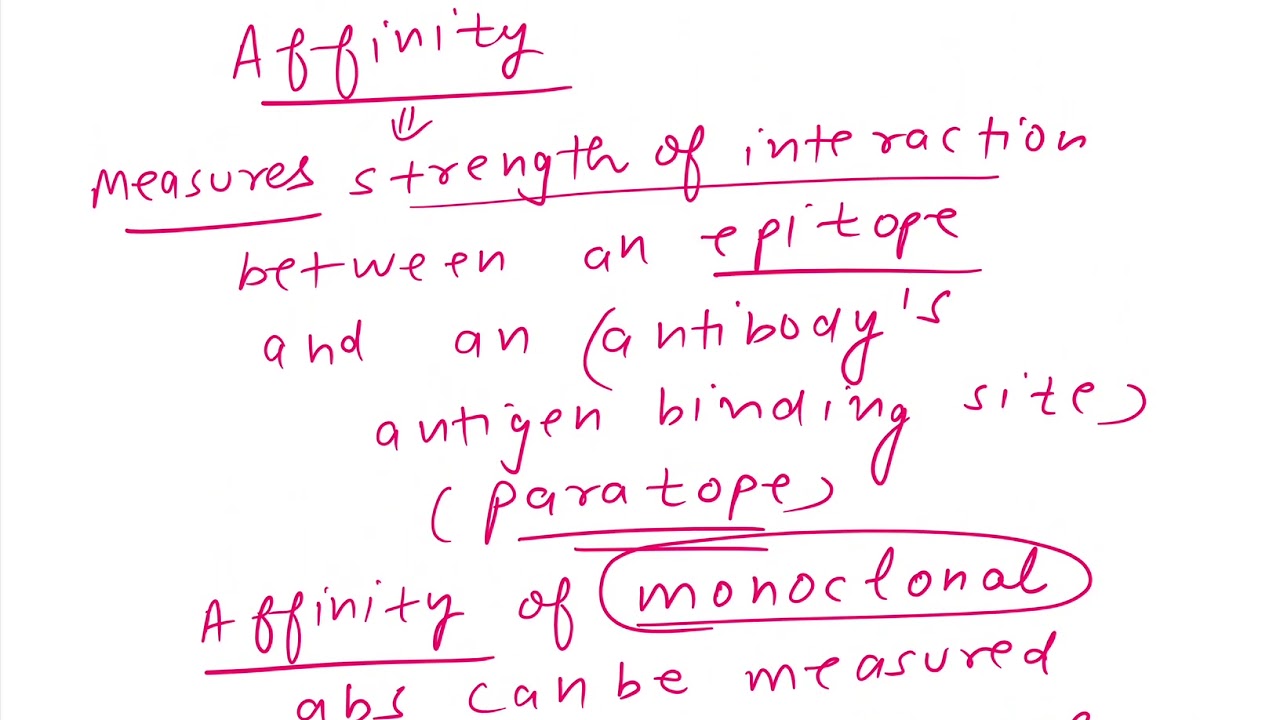 Affinity
Measures strength of interaction
between an epitope
and an (antibody's
antigen binding site)
(paratope)
Affinity of monoclonal
abs can be measured